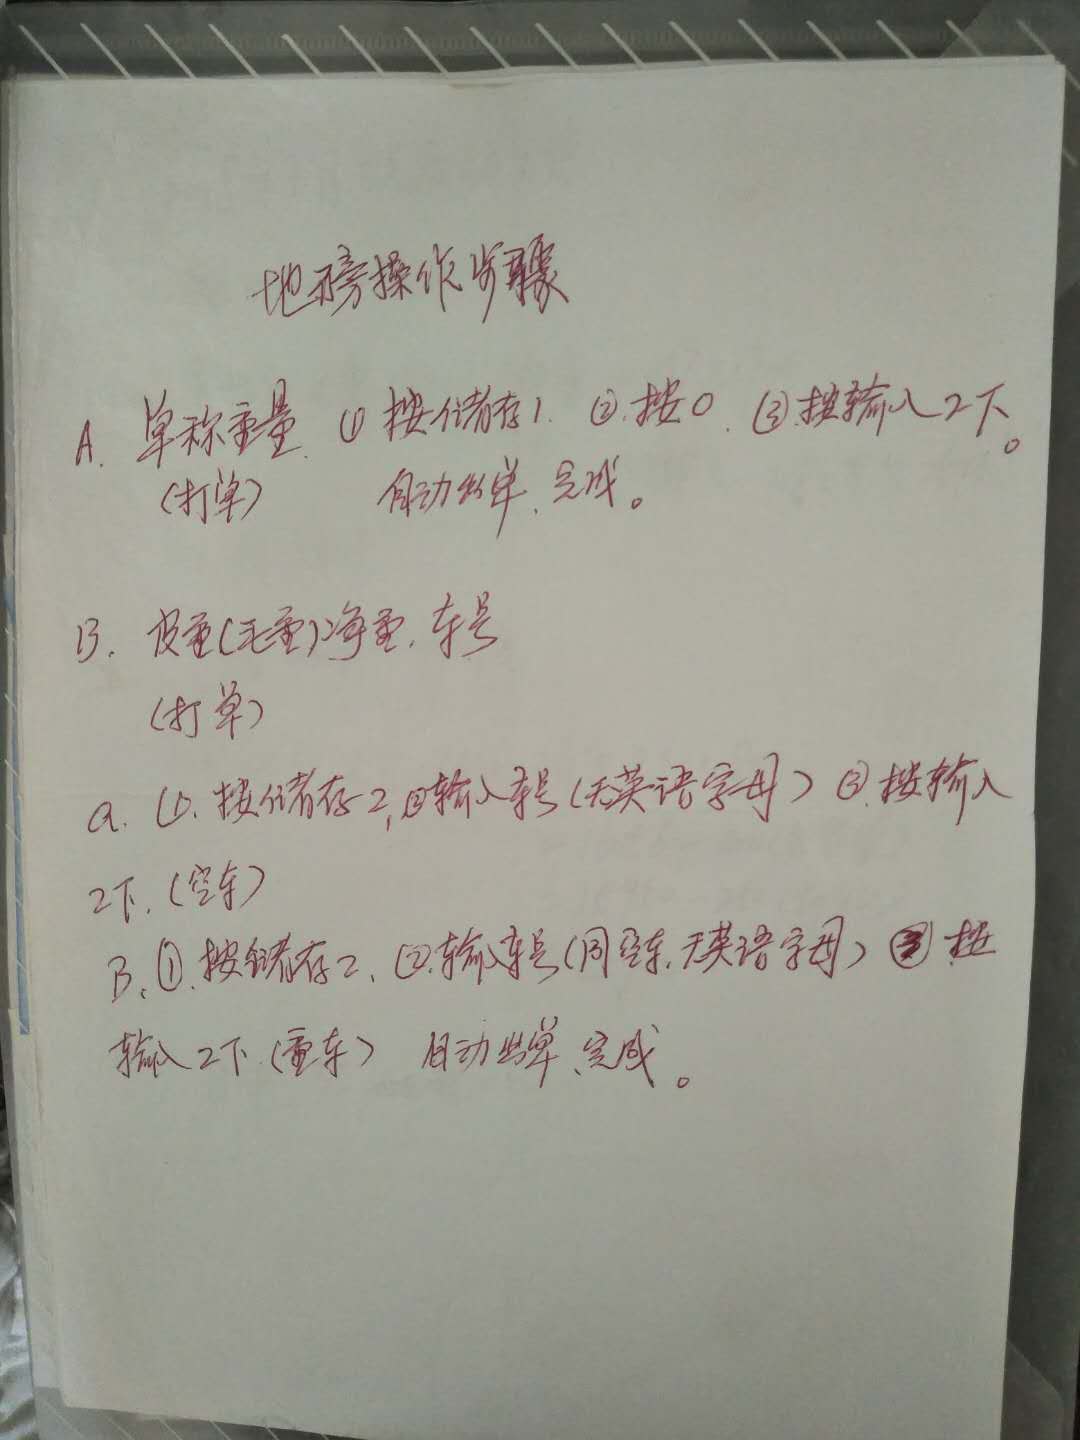 地磅操作步骤
A. 单称重量. ① 按储存1. ②.按0. ③.按输入2下。
(打单) 自动出单、完成。
B. 皮重(毛重)净重.车号
(打单)
a. ①.按储存2,②输入车号(无英语字母) ③.按输入
2下.(空车)
B.①.按储存2、②.输入车号(同空车.无英语字母) ③ 按
输入2下(重车) 自动出单、完成。